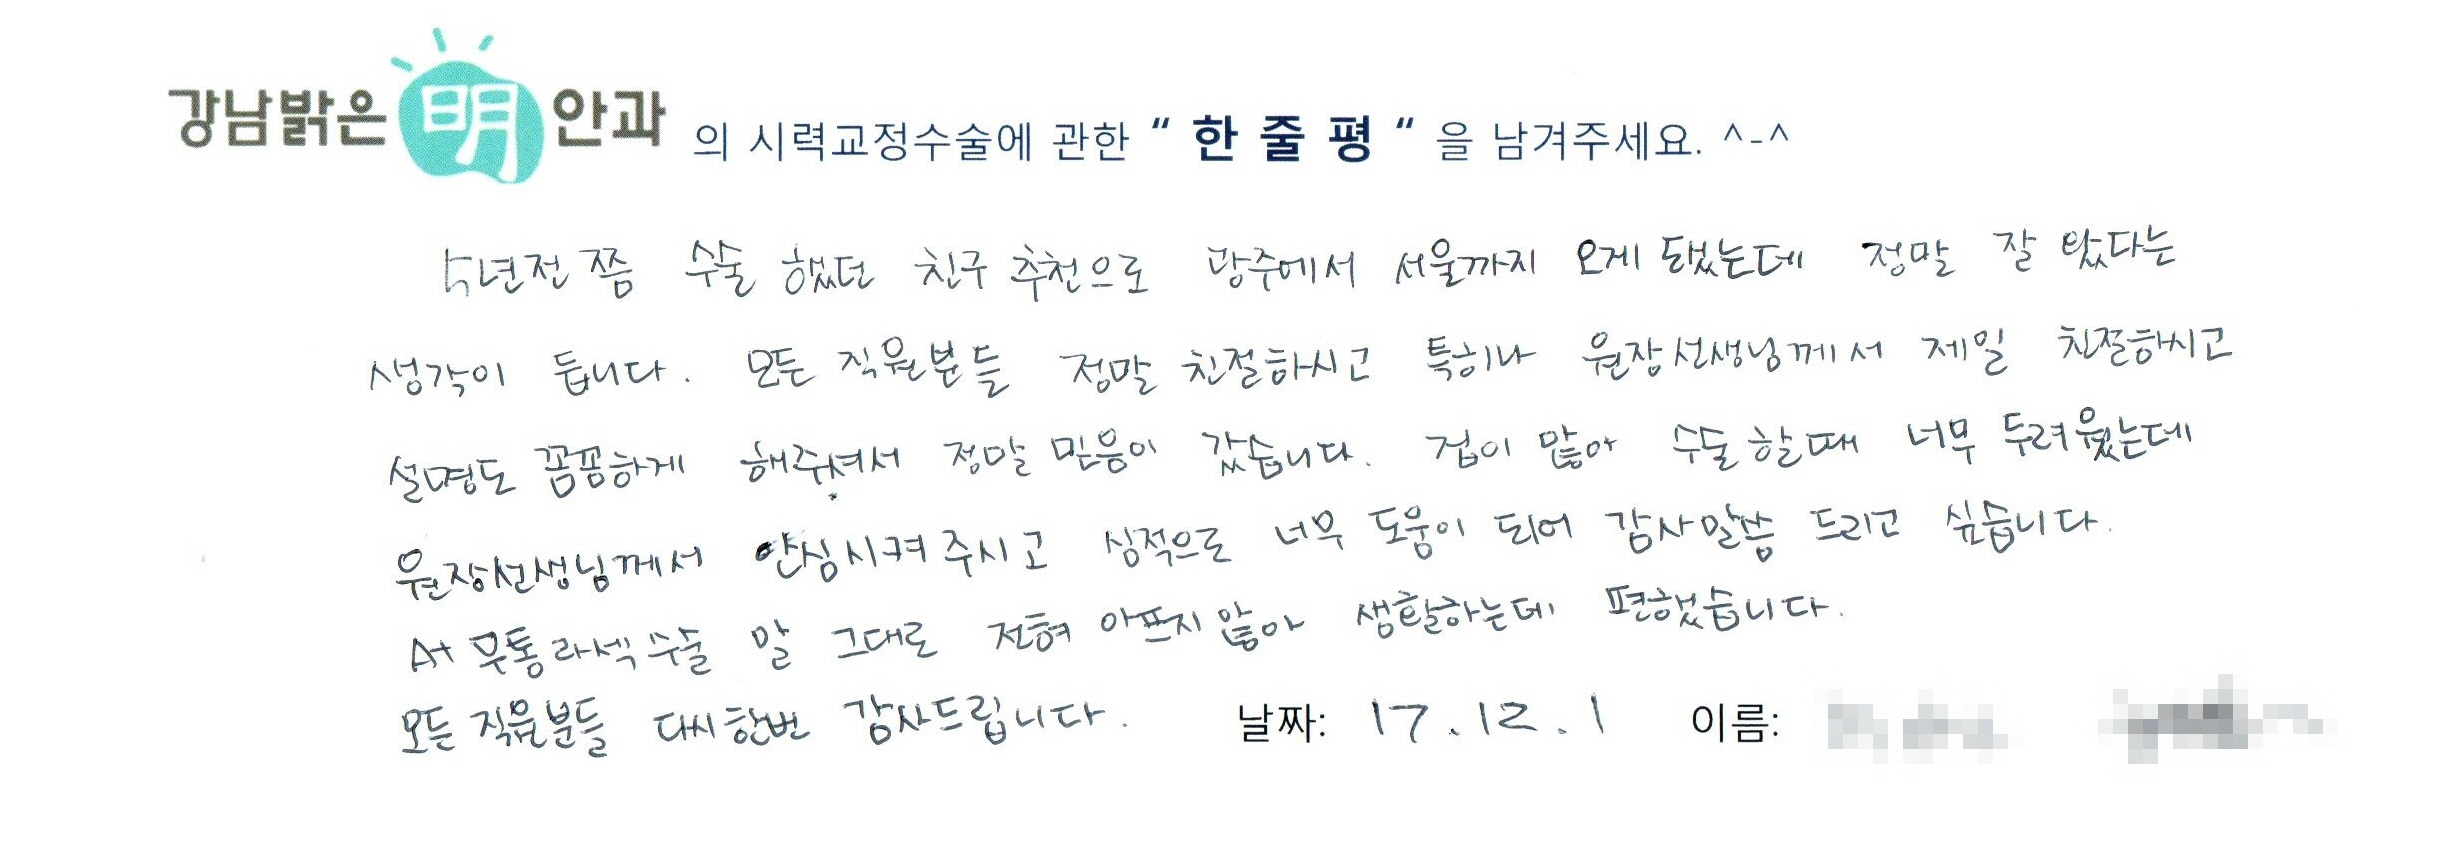 강남밝은 明 안과 의 시력교정수술에 관한 " 한 줄 평 " 을 남겨주세요. ^-^
5년전 쯤 수술 했던 친구 추천으로 광주에서 서울까지 오게 됐는데 정말 잘 왔다는
생각이 듭니다. 모든 직원분들 정말 친절하시고 특히나 원장선생님께서 제일 친절하시고
설명도 꼼꼼하게 해주셔서 정말 믿음이 갔습니다. 겁이 많아 수술할때 너무 두려웠는데
원장선생님께서 안심시켜주시고 심적으로 너무 도움이 되어 감사말씀 드리고 싶습니다.
A+ 무통라섹수술 말 그대로 전혀 아프지않아 생활하는데 편했습니다.
모든 직원분들 다시한번 감사드립니다. 날짜: 17.12.1 이름: